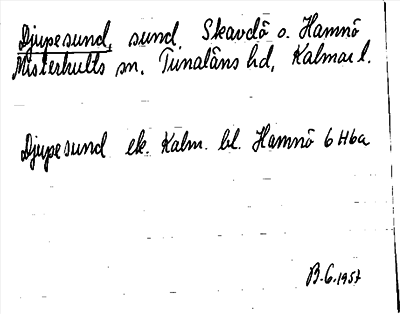 Djupesund, sund, Skavdö o. Hamnö
Misterhults sn. Tunaläns hd, Kalmar l.
Djupesund ek. Kalm. bl. Hamnö 6 H6a
B.G. 1957